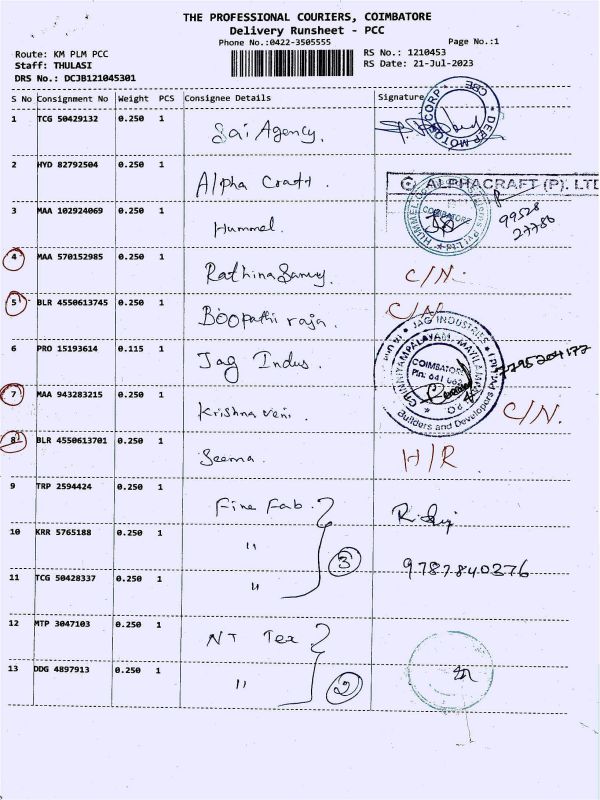 THE PROFESSIONAL COURIERS, COIMBATORE
Delivery Runsheet - PCC
Phone No.:0422-3505555 Page No.:1
Route: KM PLM PCC RS No.: 1210453
Staff: THULASI RS Date: 21-Jul-2023
DRS No.: DCJB121045301
S No Consignment No Weight PCS Consignee Details Signature
1 TCG 50429132 0.250 1 Sai Agency.
DERP MOTOR CORP * CBE *
2 HYD 82792504 0.250 1 Alpha Craft.
ALPHACRAFT (P). LTD
3 MAA 102924069 0.250 1 Hummel.
COIMBATORE
99528
27786
4 MAA 570152985 0.250 1 Rathinasamy C/N.
5 BLR 4550613745 0.250 1 Boopathi raja. C/N
6 PRO 15193614 0.115 1 Jag Indus.
JAG INDUSTRIES
CHINNIYAMPALAYAM, MAYILAMPATTI
COIMBATORE
Pin: 641 062
Builders and Developers
7795204177
7 MAA 943283215 0.250 1 Krishna veni C/N.
8 BLR 4550613701 0.250 1 Seema. H/R
9 TRP 2594424 0.250 1 Fine Fab.
10 KRR 5765188 0.250 1 "
3
9787840376
11 TCG 50428337 0.250 1 "
12 MTP 3047103 0.250 1 NT Tex
13 DDG 4897913 0.250 1 "
2